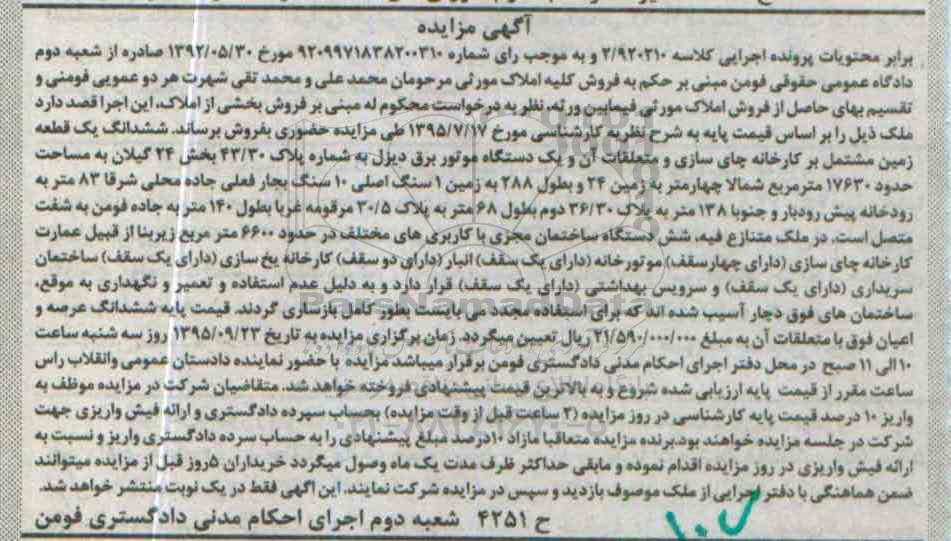 آگهی مزایده
برابر محتویات پرونده اجرایی کلاسه ۲/۹۲۰۲۱۰ و به موجب رای شماره ۹۲۰۹۹۷۱۸۳۸۲۰۰۳۱۰ مورخ ۱۳۹۲/۰۵/۳۰ صادره از شعبه دوم
دادگاه عمومی حقوقی فومن مبنی بر حکم به فروش کلیه املاک مورثی مرحومان محمد علی و محمد تقی شهرت هر دو عمویی فومنی و
تقسیم بهای حاصل از فروش املاک مورثی فیمابین ورثه، نظر به درخواست محکوم له مبنی بر فروش بخشی از املاک، این اجرا قصد دارد
ملک ذیل را بر اساس قیمت پایه به شرح نظریه کارشناسی مورخ ۱۳۹۵/۷/۱۷ طی مزایده حضوری بفروش برساند. ششدانگ یک قطعه
زمین مشتمل بر کارخانه چای سازی و متعلقات آن و یک دستگاه موتور برق دیزل به شماره پلاک ۴۳/۳۰ بخش ۲۴ گیلان به مساحت
حدود ۱۷۶۳۰ مترمربع شمالا چهارمتر به زمین ۲۴ و بطول ۲۸۸ به زمین ۱ سنگ اصلی ۱۰ سنگ بجار فعلی جاده محلی شرقا ۸۳ متر به
رودخانه پیش رودبار و جنوبا ۱۳۸ متر به پلاک ۳۶/۳۰ دوم بطول ۶۸ متر به پلاک ۳۰/۵ مرقومه غربا بطول ۱۴۰ متر به جاده فومن به شفت
متصل است. در ملک متنازع فیه، شش دستگاه ساختمان مجزی با کاربری های مختلف در حدود ۶۶۰۰ متر مربع زیربنا از قبیل عمارت
کارخانه چای سازی (دارای چهارسقف) موتورخانه (دارای یک سقف) انبار (دارای دو سقف) کارخانه یخ سازی (دارای یک سقف) ساختمان
سریداری (دارای یک سقف) و سرویس بهداشتی (دارای یک سقف) قرار دارد و به دلیل عدم استفاده و تعمیر و نگهداری به موقع،
ساختمان های فوق دچار آسیب شده اند که برای استفاده مجدد می بایست بطور کامل بازسازی گردند. قیمت پایه ششدانگ عرصه و
اعیان فوق با متعلقات آن به مبلغ ۲۱/۵۹۰/۰۰۰/۰۰۰ ریال تعیین میگردد. زمان برگزاری مزایده به تاریخ ۱۳۹۵/۰۹/۲۳ روز سه شنبه ساعت
۱۰ الی ۱۱ صبح در محل دفتر اجرای احکام مدنی دادگستری فومن برقرار میباشد مزایده با حضور نماینده دادستان عمومی وانقلاب راس
ساعت مقرر از قیمت پایه ارزیابی شده شروع و به بالاترین قیمت پیشنهادی فروخته خواهد شد. متقاضیان شرکت در مزایده موظف به
واریز ۱۰ درصد قیمت پایه کارشناسی در روز مزایده (۲ ساعت قبل از وقت مزایده) بحساب سپرده دادگستری و ارائه فیش واریزی جهت
شرکت در جلسه مزایده خواهند بود.برنده مزایده متعاقبا مازاد ۱۰درصد مبلغ پیشنهادی را به حساب سرده دادگستری واریز و نسبت به
ارائه فیش واریزی در روز مزایده اقدام نموده و مابقی حداکثر ظرف مدت یک ماه وصول میگردد خریداران ۵روز قبل از مزایده میتوانند
ضمن هماهنگی با دفتر اجرایی از ملک موصوف بازدید و سپس در مزایده شرکت نمایند. این اگهی فقط در یک نوبت منتشر خواهد شد.
ح ۴۲۵۱ شعبه دوم اجرای احکام مدنی دادگستری فومن
ParsNamadData